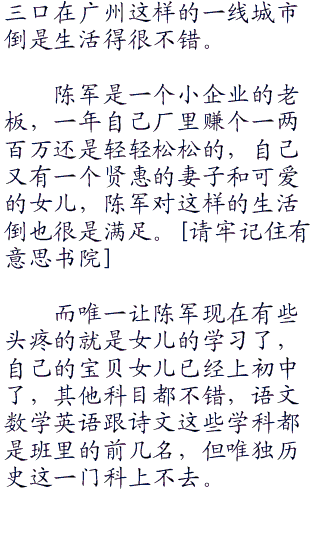 三口在广州这样的一线城市
倒是生活得很不错。
陈军是一个小企业的老
板，一年自己厂里赚个一两
百万还是轻轻松松的，自己
又有一个贤惠的妻子和可爱
的女儿，陈军对这样的生活
倒也很是满足。[请牢记住有
意思书院]
而唯一让陈军现在有些
头疼的就是女儿的学习了，
自己的宝贝女儿已经上初中
了，其他科目都不错，语文
数学英语跟诗文这些学科都
是班里的前几名，但唯独历
史这一门科上不去。